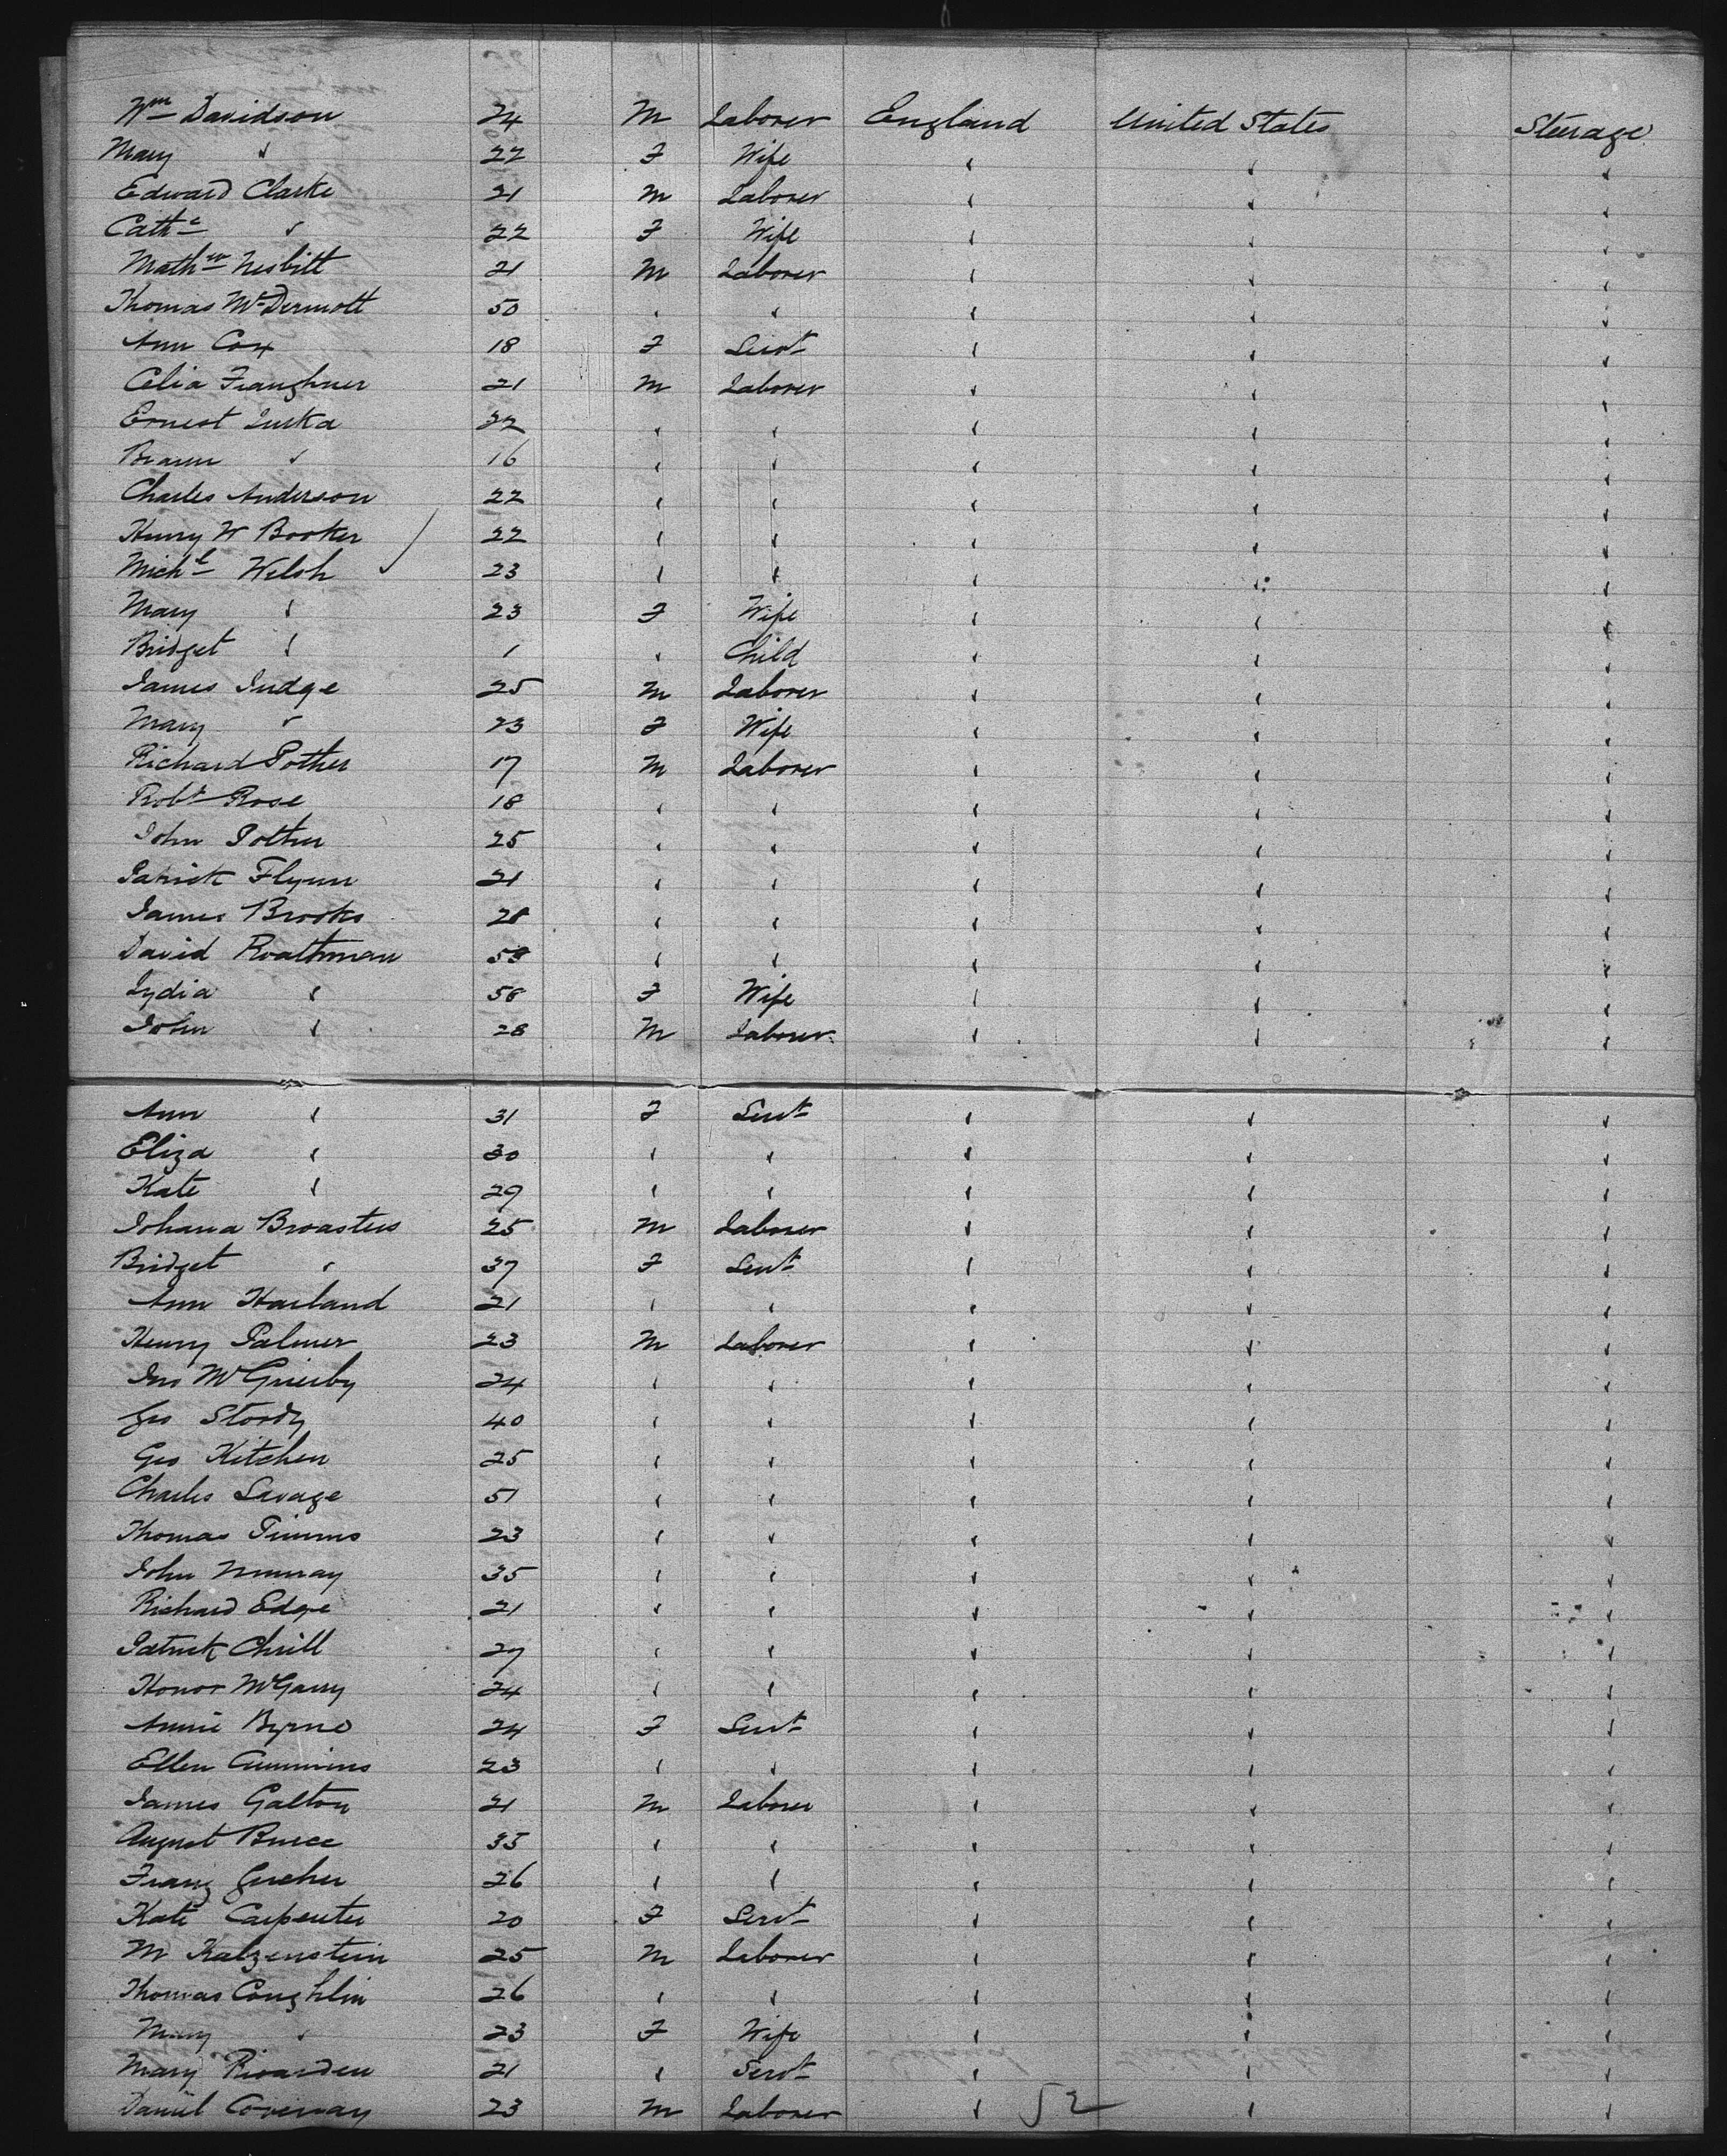 Wm Davidson 24 M Laborer England United States Steerage
Mary " 22 F Wife " " "
Edward Clarke 21 M Laborer " " "
Cathe " 22 F Wife " " "
Mathw Nesbitt 21 M Laborer " " "
Thomas McDermott 50 " " " " "
Ann Cox 18 F Servt " " "
Celia Fraughner 21 M Laborer " " "
Ernest Luska 22 " " " " "
" 16 " " " " "
Charles Anderson 22 " " " " "
Henry W Booker 22 " " " " "
Michl Welsh 23 " " " " "
Mary " 23 F Wife " " "
Bridget " 1 " Child " " "
James Judge 25 M Laborer " " "
Mary " 23 F Wife " " "
Richard Pother 17 M Laborer " " "
Robt Rose 18 " " " " "
John Pother 25 " " " " "
Patrick Flynn 21 " " " " "
James Brooks 28 " " " " "
David Roathman 59 " " " " "
Lydia " 58 F Wife " " "
John " 28 M Laborer " " "
Ann " 31 F Servt " " "
Eliza " 30 " " " " "
Kate " 29 " " " " "
Johana Broasters 25 M Laborer " " "
Bridget " 37 F Servt " " "
Ann Harland 21 " " " " "
Henry Palmer 23 M Laborer " " "
Jno McGrierby 24 " " " " "
Geo Stordy 40 " " " " "
Geo Kitchen 25 " " " " "
Charles Savage 51 " " " " "
Thomas Timms 23 " " " " "
John Murray 35 " " " " "
Richard Edge 21 " " " " "
Patrick Chrill 27 " " " " "
Honor McGarry 24 " " " " "
Annie Byrne 24 F Servt " " "
Ellen Cummins 23 " " " " "
James Galton 21 M Laborer " " "
August Bucce 35 " " " " "
Franz 26 " " " " "
Kate Carpenter 20 F Servt " " "
M Katzenstein 25 M Laborer " " "
Thomas Coughlin 26 " " " " "
Mary " 23 F Wife " " "
Mary Rioarden 21 " Servt " " "
Daniel Conway 23 M Laborer " " "
52